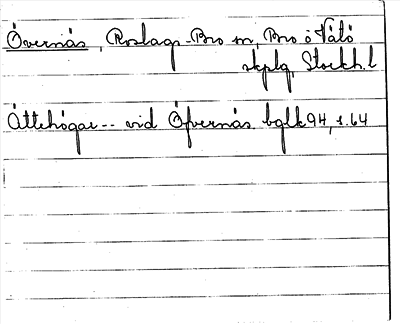 Övernäs, Roslags-Bro sn, Bro o Vätö
skplg, Stockh. l
Ättehögar -- vid Öfvernäs bglk 94, s. 64